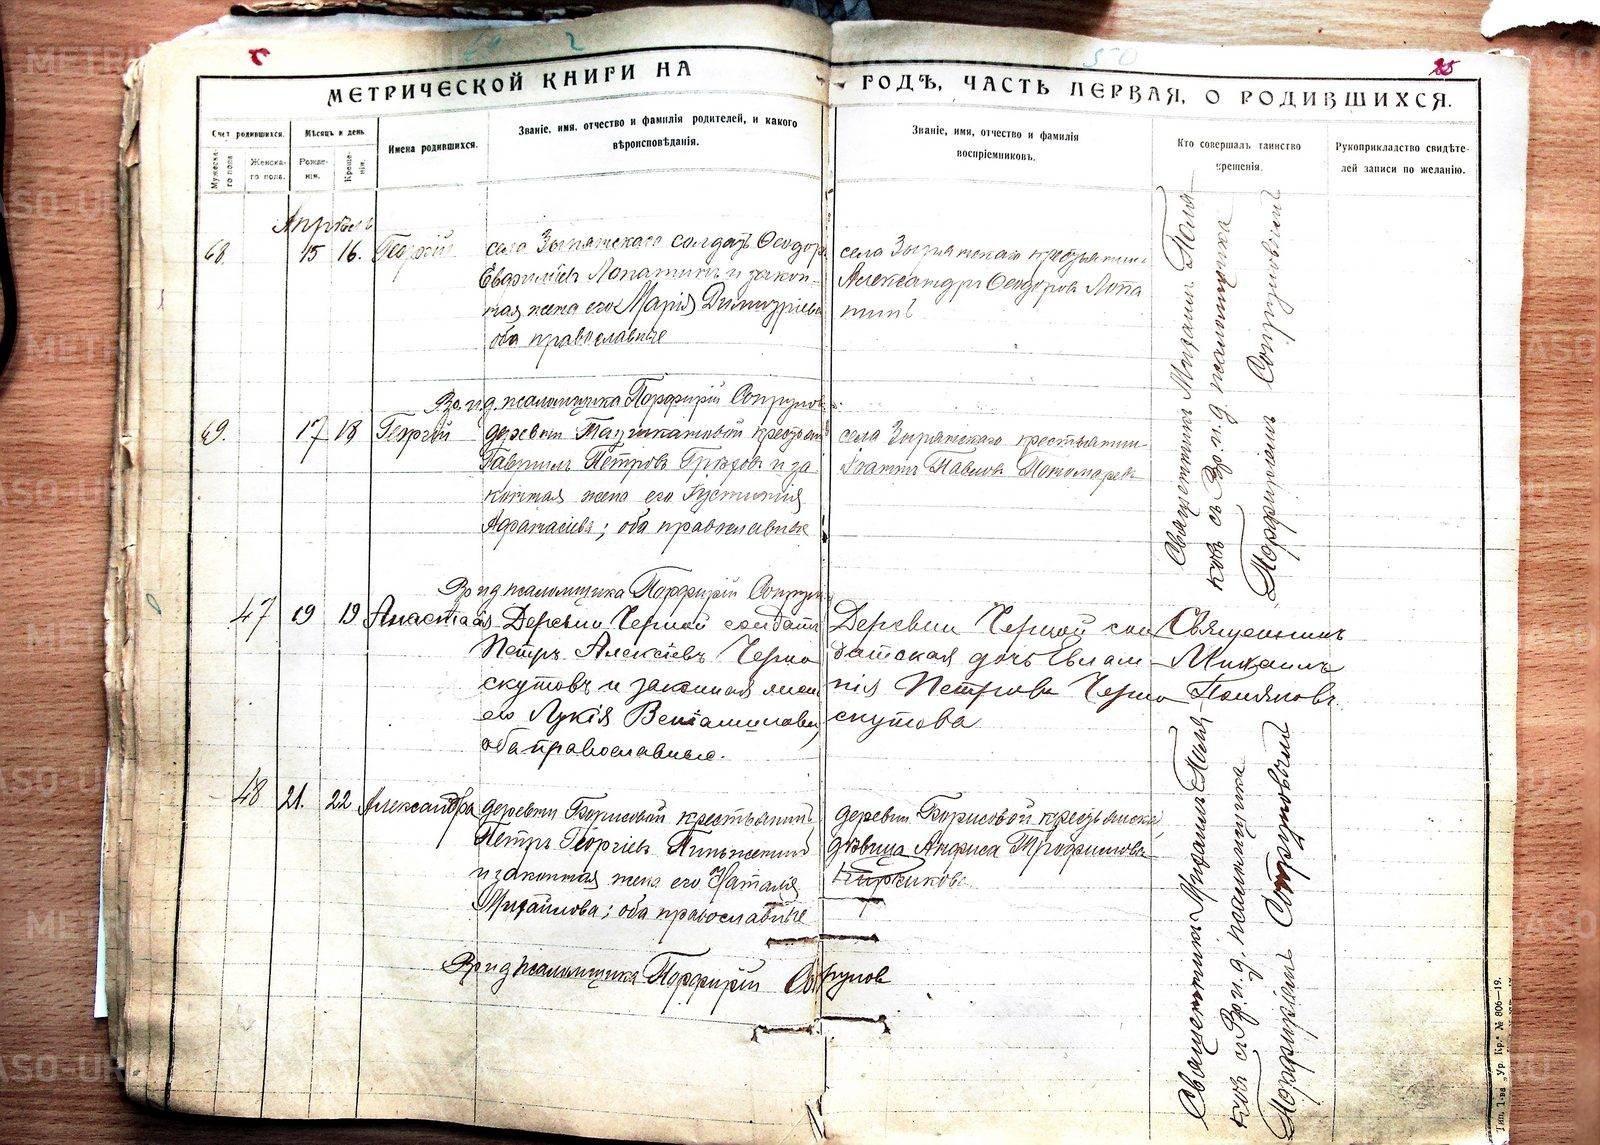 50
25
МЕТРИЧЕСКОЙ КНИГИ НА
РОДѢ, ЧАСТЬ ПЕРВАЯ, О РОДИВШИХСЯ.
Счет родившихся.
Мужеска-го пола
Женска-го пола.
Мѣсяцъ и день
Рожде-нія.
Креще-нія.
Имена родившихся.
Званіе, имя, отчество и фамилія родителей, и какого
вѣроисповѣданія.
Званіе, имя, отчество и фамилія
воспріемниковъ.
Кто совершалъ таинство
крещенія.
Рукоприкладство свидѣте-
лей записи по желанію.
Апрѣль
68. 15 16. Георгій
села Зырянскаго солдатъ Ѳеодоръ
Евфиміевъ Лопатинъ и закон-
ная жена его Марія Димитріева
оба православные
села Зырянскаго крестьянинъ
Александръ Ѳеодоровъ Лопа
тинъ
Вр. и д. псаломщика Порфирій
69. 17 18 Георгій
деревни
Гавріилъ Петровъ и за
конная жена его Іустинія
Аѳанасіева; оба православные
села Зырянскаго крестьянин
Іоаннъ Павловъ Пономаревъ
Священникъ Михаилъ
ковъ съ Вр. и. д псаломщика
Порфиріемъ
Вр и д псаломщика Порфирій
47 19 19 Анастасія
Деревни Черной солдатъ
Петръ Алексіевъ Черно
скутовъ и законная жена
его Лукія Веніаминова,
оба православные.
Деревни Черной сол
датская дочь Евлам-
пія Петрова Черно
скутова
Священникъ
Михаилъ
48 21. 22 Александра
деревни Борисовой крестьянинъ
Петръ Георгіевъ
и законная жена его Наталія
Михайлова; оба православные
деревни Борисовой крестьянская
дѣвица Анфиса Трофимова
Священникъ Михаилъ
ковъ съ Вр. и. д. псаломщика
Порфиріемъ
Вр и д псаломщика Порфирій
Тип. Т-ва „Ур. Кр.“ № 806—19.